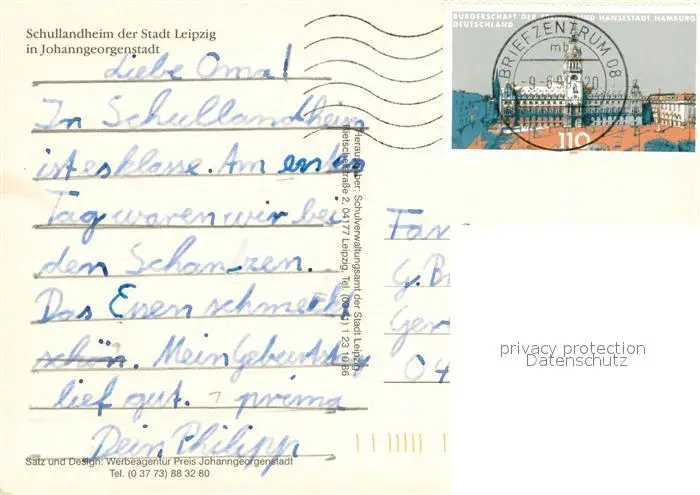 Schullandheim der Stadt Leipzig
in Johanngeorgenstadt
Liebe Oma!
In Schullandheim
ist es klasse. Am ersten
Tag waren wir bei
den Schanzen.
Das Essen schmeckt
schön. Mein Geburtstag
lief gut. prima
Dein Philipp
Satz und Design: Werbeagentur Preis Johanngeorgenstadt
Tel. (0 37 73) 88 32 80
Herausgeber: Schulverwaltungsamt der Stadt Leipzig,
2, 04177 Leipzig, Tel. (03 41) 1 23 10 86
BÜRGERSCHAFT DER FREIEN UND HANSESTADT HAMBURG
DEUTSCHLAND
110
BRIEFZENTRUM 08
mb
Fam
G. B
Ger
04
privacy protection
Datenschutz